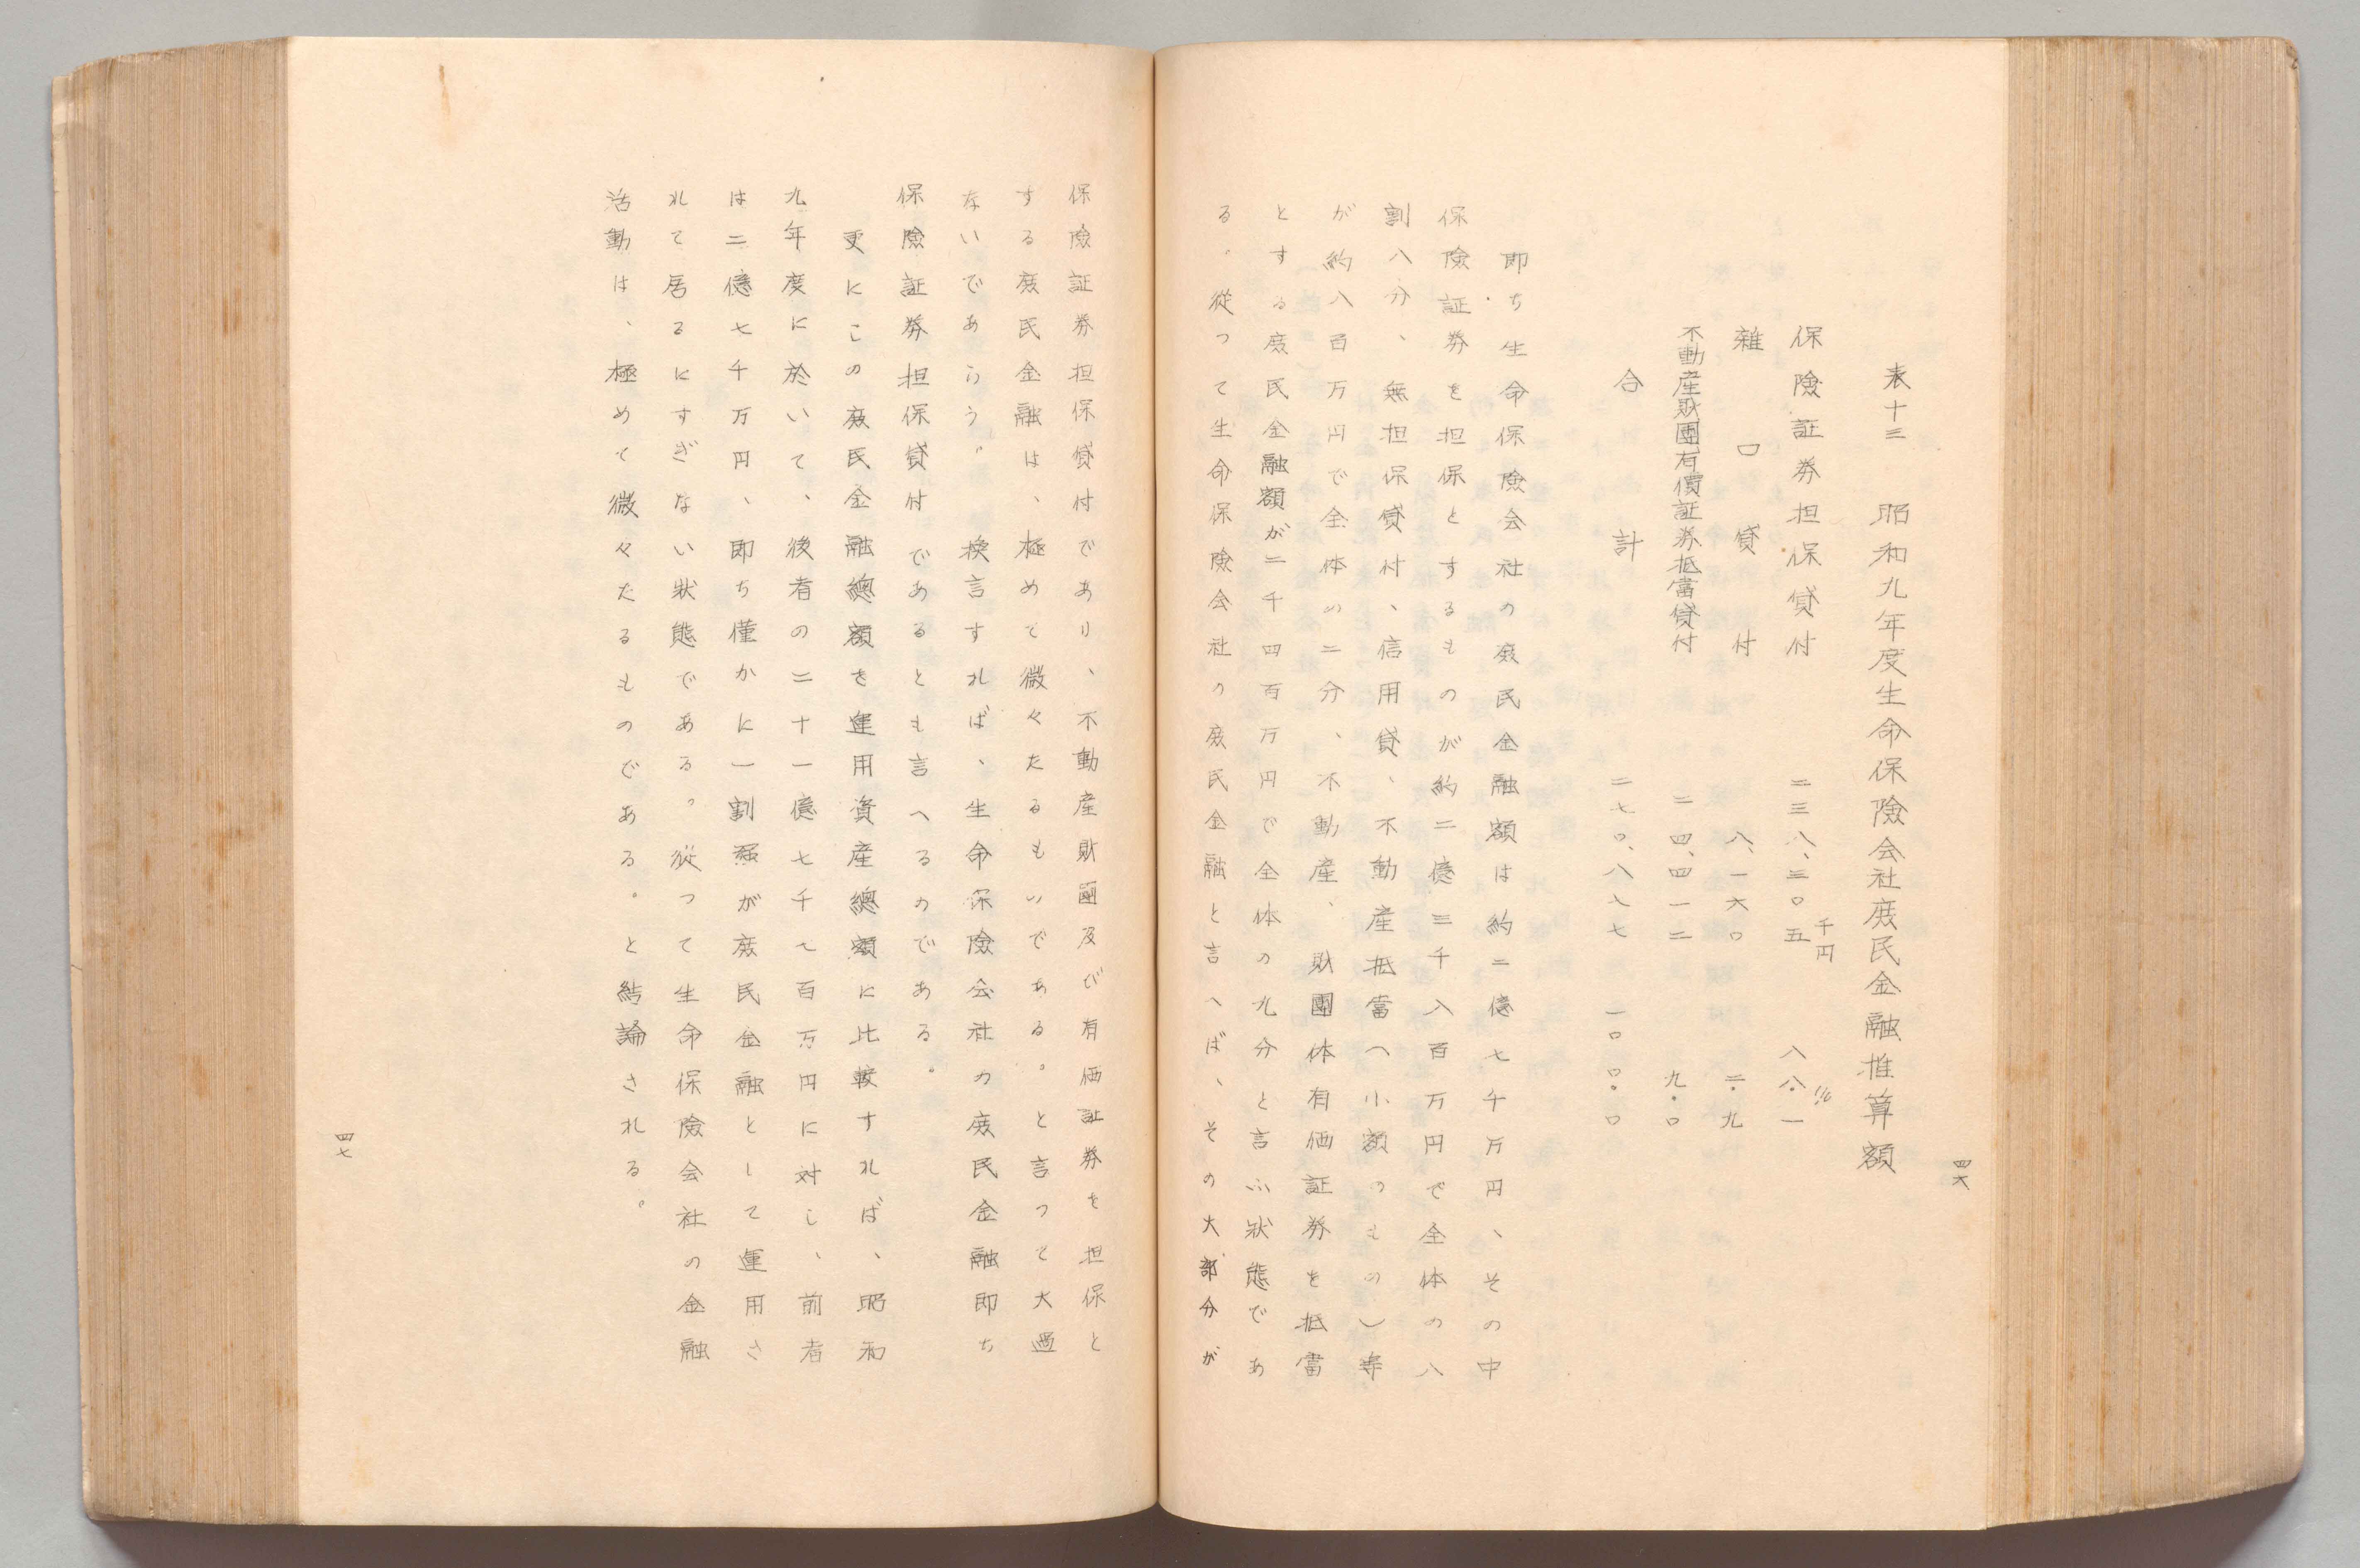 四六
表十三　昭和九年度生命保險会社庶民金融推算額
千円　％
保險証券担保貸付　二三八、三〇五　八八・一
雜口貸付　八、一六〇　二・九
不動産財團有價証券抵當貸付　二四、四一二　九・〇
合計　二七〇、八七七　一〇〇・〇
即ち生命保險会社の庶民金融額は約二億七千万円、その中
保險証券を担保とするものが約二億三千八百万円で全体の八
割八分、無担保貸付、信用貸、不動産抵當へ小額のもの）等
が約八百万円で全体の二分、不動産、財團体有価証券を抵當
とする庶民金融額が二千四百万円で全体の九分と言ふ狀態であ
る。従つて生命保險会社の庶民金融と言へば、その大部分が
保險証券担保貸付であり、不動産財團及び有価証券を担保と
する庶民金融は、極めて微々たるものである。と言つて大過
ないであらう。換言すれば、生命保險会社の庶民金融即ち
保險証券担保貸付であるとも言へるのである。
更にこの庶民金融總額を運用資産總額に比較すれば、昭和
九年度に於いて、後者の二十一億七千七百万円に対し、前者
は二億七千万円、即ち僅かに一割强が庶民金融として運用さ
れて居るにすぎない狀態である。従つて生命保險会社の金融
活動は、極めて微々たるものである。と結論される。
四七